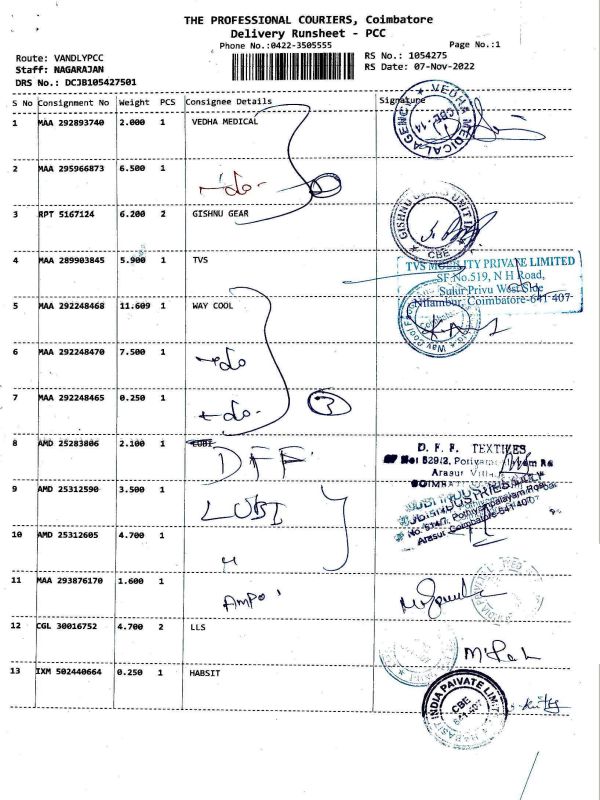 THE PROFESSIONAL COURIERS, Coimbatore
Delivery Runsheet - PCC
Phone No.:0422-3505555
Page No.:1
Route: VANDLYPCC
RS No.: 1054275
Staff: NAGARAJAN
RS Date: 07-Nov-2022
DRS No.: DCJB105427501
S No Consignment No Weight PCS Consignee Details Signature
1 MAA 292893740 2.000 1 VEDHA MEDICAL
VEDHA MEDICAL AGENCY CBE-14
2 MAA 295966873 6.500 1 -do- 2
3 RPT 5167124 6.200 2 GISHNU GEAR
CBE
4 MAA 289903845 5.900 1 TVS
TVS MOBILITY PRIVATE LIMITED
SF.No.519, N H Road,
Sulur Privu West Side
Nilambur, Coimbatore-641 407
5 MAA 292248468 11.609 1 WAY COOL
6 MAA 292248470 7.500 1 -do
7 MAA 292248465 0.250 1 -do- 3
8 AMD 25283806 2.100 1 LUBI DFF
D. F. F. TEXTILES
Arasur Village
COIMBATORE
9 AMD 25312590 3.500 1 LUBI
LUBI INDUSTRIES LLP
No. 514/7, Pothiyampalayam Road
Arasur Coimbatore-641 407
10 AMD 25312605 4.700 1 "
11 MAA 293876170 1.600 1 AMPO
12 CGL 30016752 4.700 2 LLS
13 IXM 502440664 0.250 1 HABSIT
HABASIT INDIA PAIVATE LIMIT
CBE
641-407